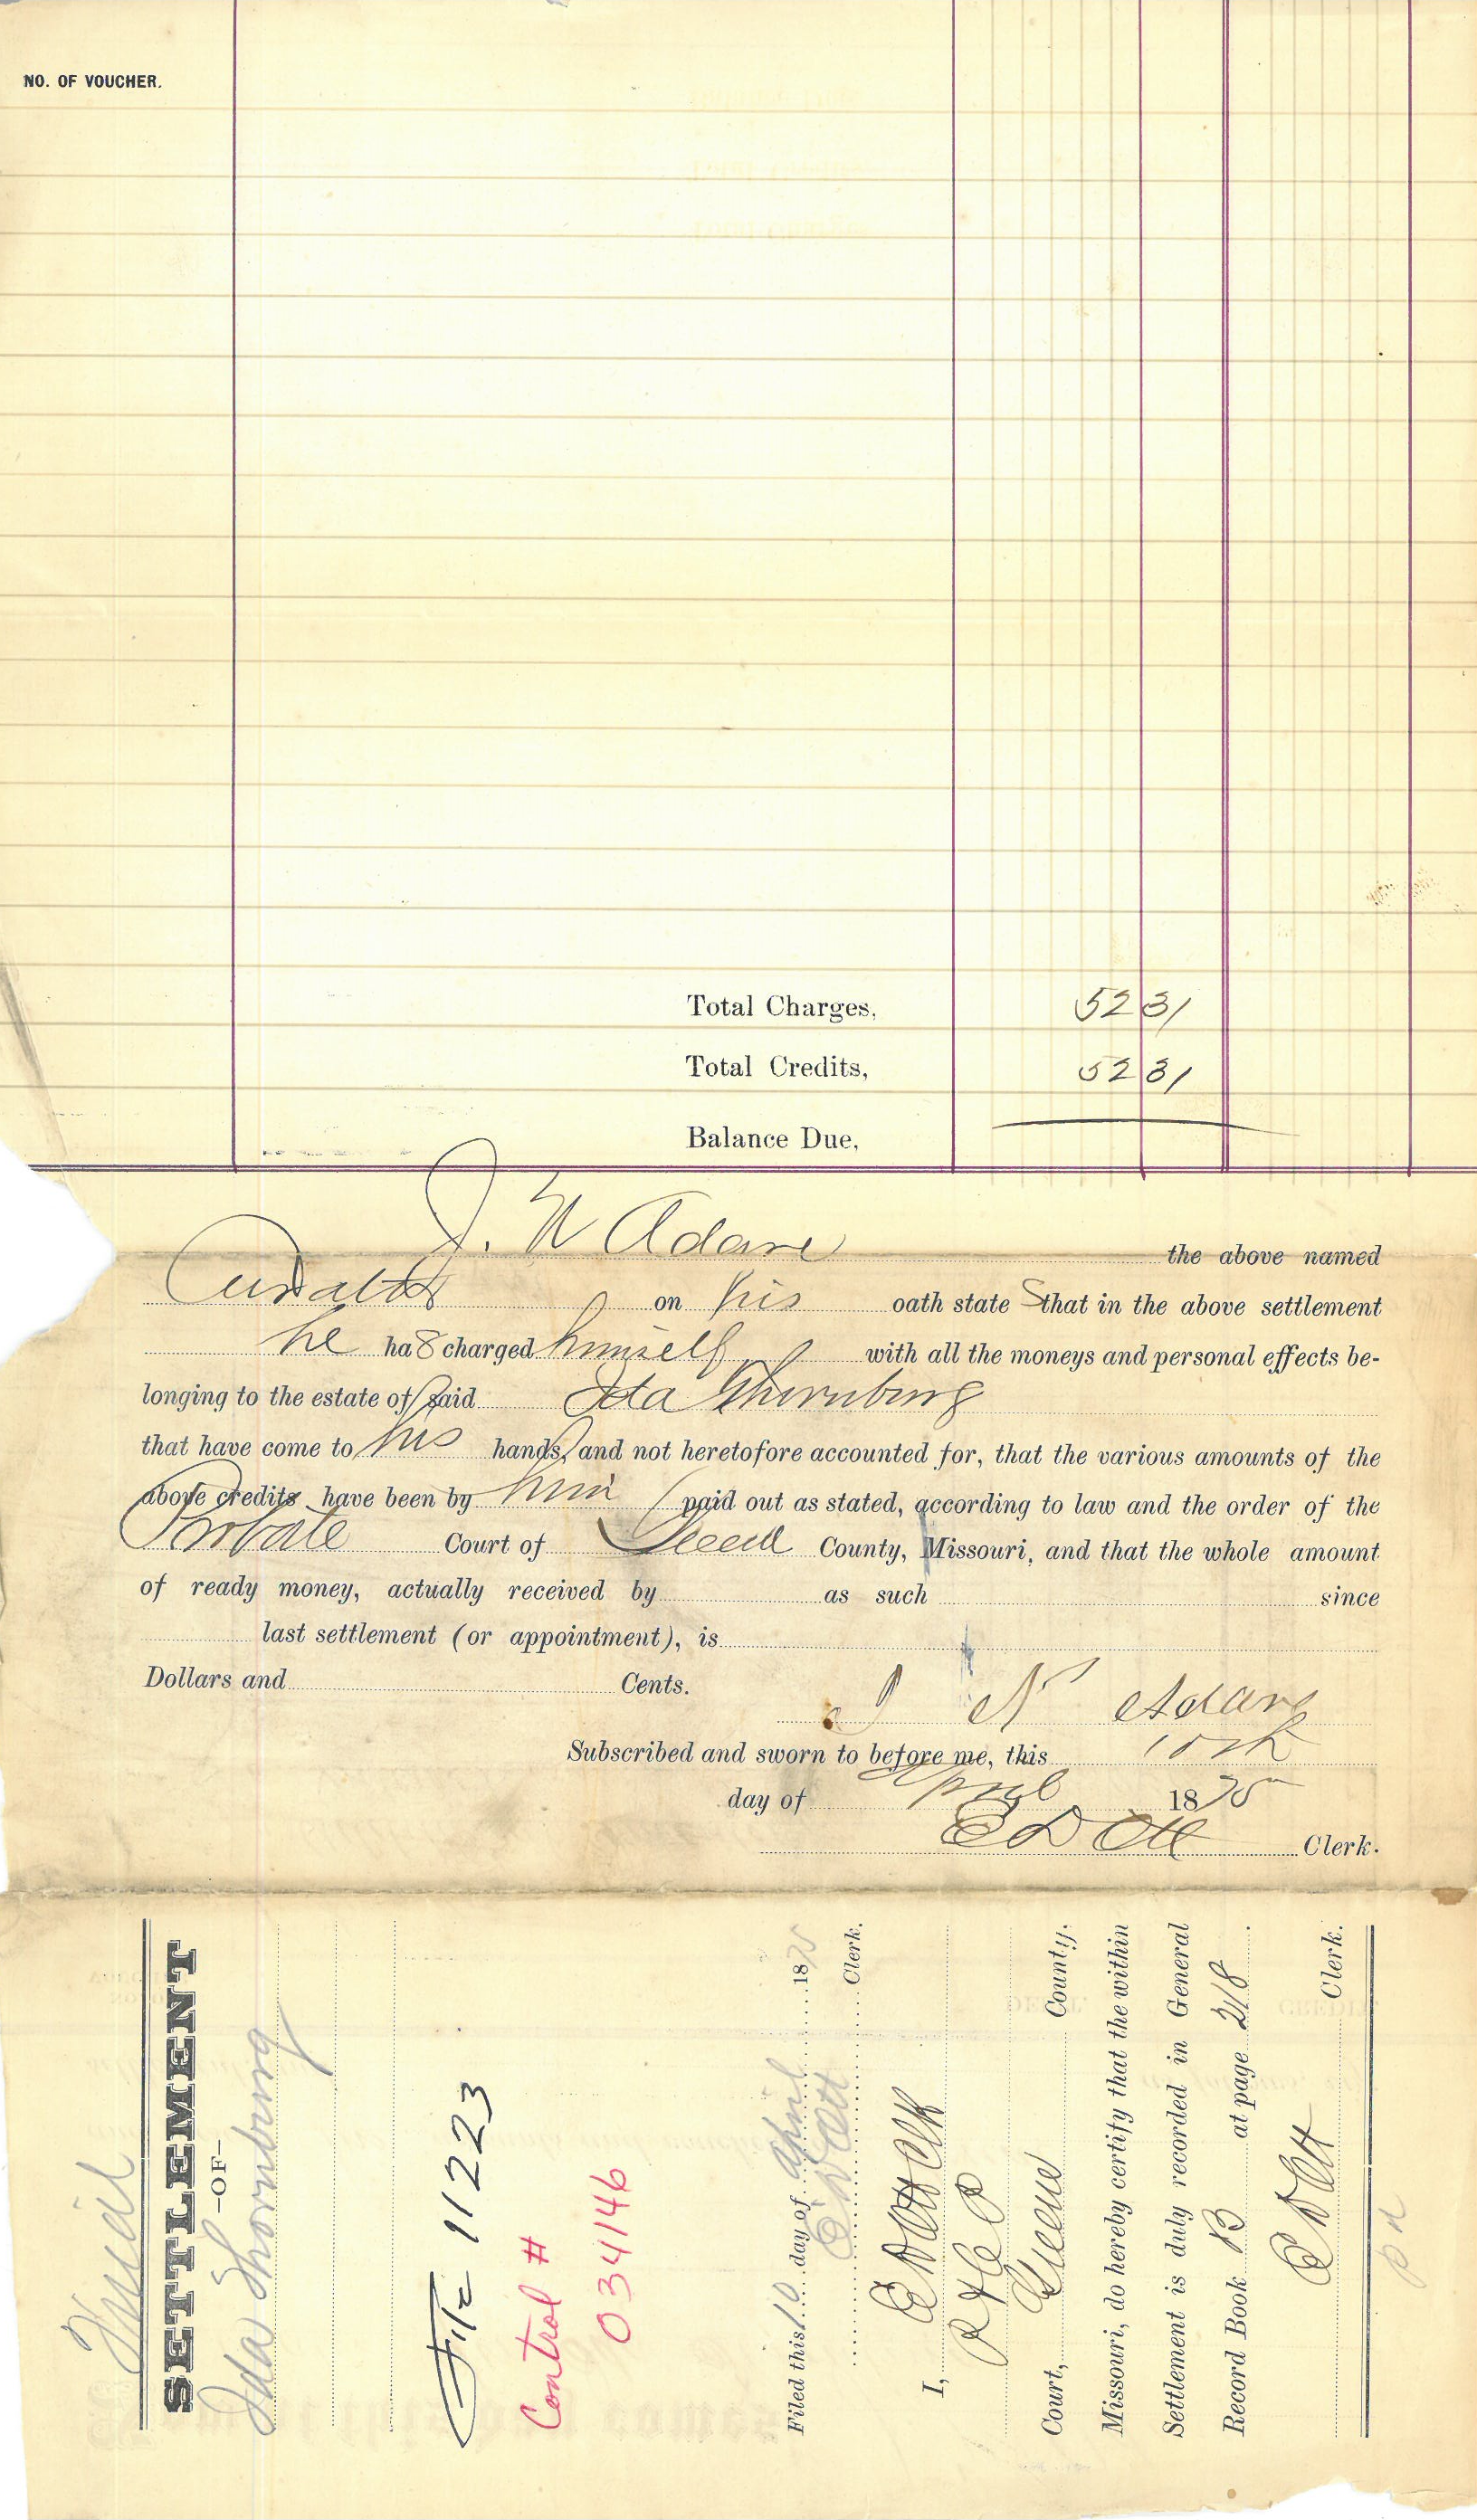 NO. OF VOUCHER.
Total Charges, 52 31
Total Credits, 52 31
Balance Due,
J. N Adare the above named
Curator on his oath state S that in the above settlement
he ha s charged himself with all the moneys and personal effects be-
longing to the estate of said Ida Thornburg
that have come to his hands, and not heretofore accounted for, that the various amounts of the
above credits have been by him paid out as stated, according to law and the order of the
Probate Court of Greene County, Missouri, and that the whole amount
of ready money, actually received by as such since
last settlement (or appointment), is
Dollars and Cents.
J N Adare
Subscribed and sworn to before me, this 10th
day of April 1875
E D Ott Clerk.
Final
SETTLEMENT
—OF—
Ida Thornburg
File 11223
Control #
034146
Filed this 10 day of april 1875
E D Ott Clerk.
I, E D Ott Clk
P & C C
Court, Greene County,
Missouri, do hereby certify that the within
Settlement is duly recorded in General
Record Book B at page 218.
E D Ott Clerk.
pd